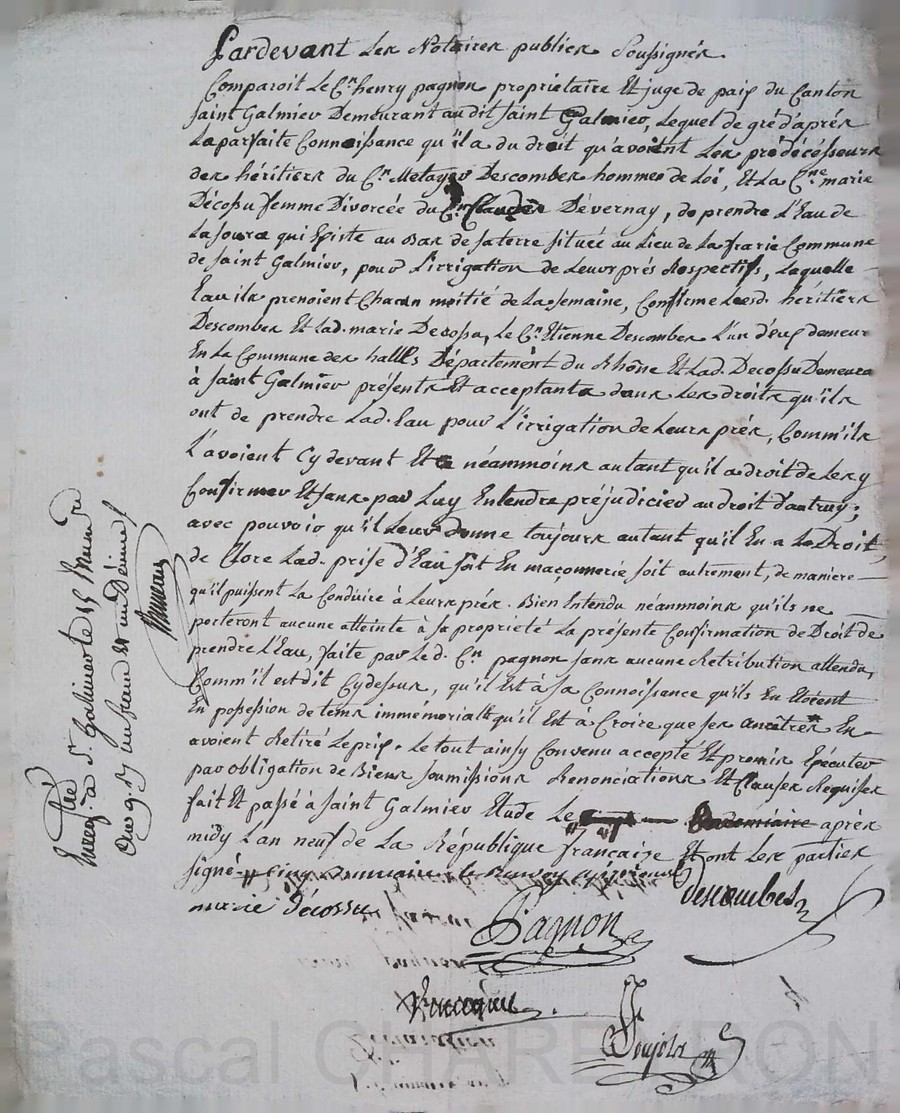 Pardevant Les Notaires publics Soussignés
Comparoit Le Cn. henry pagnon propriétaire Et juge de paix du Canton
Saint Galmier Demeurant audit Saint Galmier, Lequel de gré d'après
La parfaite Connoissance qu'il a du droit qu'avoient Les prédécésseurs
des héritiers du Cn. Metayer Descombes homme de Loi, Et La Cne. marie
Décossu femme Divorcée du Cn. Claude Dévernay, de prendre L'Eau de
La source qui Existe au Bas de sa terre située au Lieu de La frarie Commune
de Saint Galmier, pour L'irrigation de Leurs prés Respectifs, Laquelle
Eau ils prenoient Chacun moitié de La semaine, Confirme Lesd. héritiers
Descombes Et Lad. marie Decossu, Le Cn. Etienne Descombes L'un d'eux demeur
En La Commune des halles Département du Rhône Et Lad. Decossu Demeura
à Saint Galmier présents Et acceptants dans Les droits qu'ils
ont de prendre Lad. Eau pour L'irrigation de Leurs prés, Comm'ils
L'avoient Cy devant Et néammoins autant qu'il a droit de Les y
Confirmer Et sans par Luy Entendre préjudicier au droit d'autruy;
avec pouvoir qu'il Leur donne toujours autant qu'il En a Le Droit,
de Clore Lad. prise d'Eau soit En maçonnerie soit autrement, de maniere
qu'il puissent La Conduire à Leurs prés. Bien Entendu néanmoins qu'ils ne
porteront aucune atteinte à sa propriété La présente Confirmation de Droit de
prendre L'Eau, faite par Led. Cn. pagnon sans aucune Rétribution attendu,
Comm'il est dit Cydessus, qu'il Est à sa Connoissance qu'ils En Etoient
En possession de tems immémorial Et qu'il Est à Croire que ses ancêtres En
avoient Retiré Le prix. Le tout ainsy Convenu accepté Et promis Exécuter
par obligation de Biens soumissions Renonciations Et Clauses Requises
fait Et passé à Saint Galmier Etude Le après
midy L'an neuf de La République française Et ont Les parties
signé cinq Brumaire
marie Décossu
Descombes
Pagnon
Poujols
Enregistré à St. Galmier le 15 Brumaire
Pascal CHAREYRON